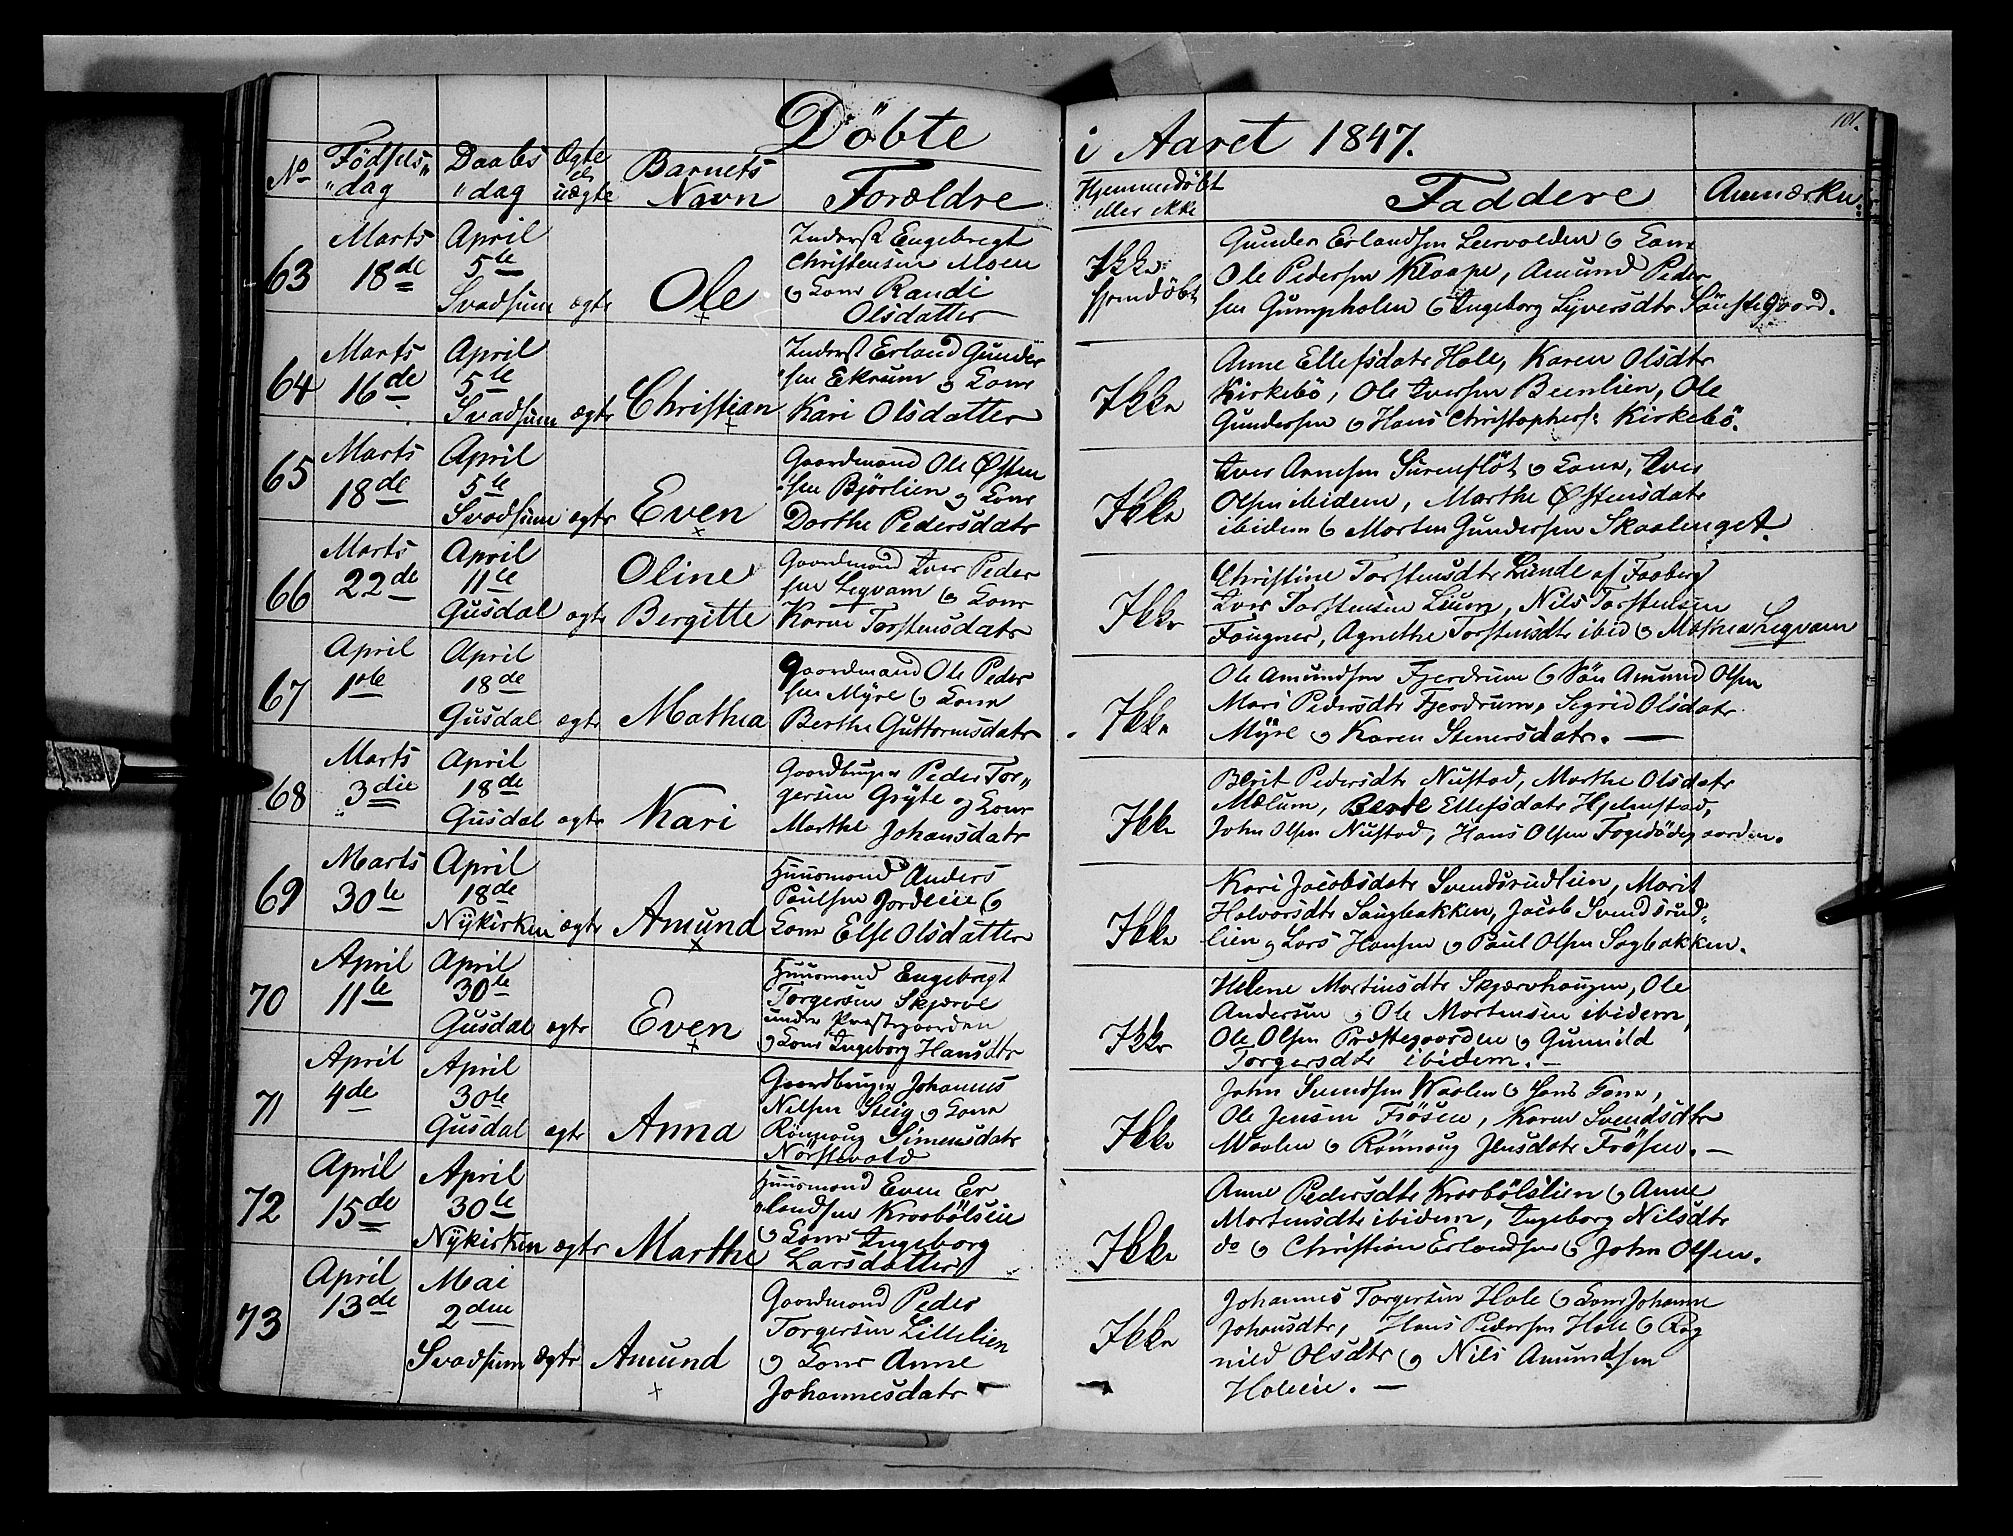 101.
Döbte i Aaret 1847.
No Födsels dag Daabs dag Ægte el. uægte Barnets Navn Forældre Hjemmedöbt eller ikke Faddere Anmærkn.
63 Marts 18de April 5te Svadsum ægte Ole
Inderst Engebregt
Christensen Moen
og Kone Randi
Olsdatter
Ikke hjemdöbt
Gunder Erlandsen Leervolden og Kone
Ole Pedersen Klaape, Amund Peder
sen Gumpholen og Ingeborg Syversdtr Sönstegaard.
64 Marts 16de April 5te Svadsum ægte Christian
Inderst Erland Gunder
sen Ekrum og Kone
Kari Olsdatter
Ikke
Anne Ellefsdatr Hole, Karen Olsdtr
Kirkebö, Ole Iversen Beenlien, Ole
Gundersen og Hans Christophers. Kirkebö.
65 Marts 18de April 5te Svadsum ægte Even
Gaardmand Ole Østen
sen Bjørlien og Kone
Dorthe Pedersdatr
Ikke
Iver Arnesen Surenflöt og Kone, Iver
Olsen ibidem, Marthe Østensdatr
ibidem og Morten Gundersen Skaalenget.
66 Marts 22de April 11te Gusdal ægte Oline Bergitte
Gaardmand Iver Peder
sen Segvam og Kone
Karen Torstensdatr
Ikke
Christine Torstensdtr Lunde af Faaberg
Iver Torstensen Leum, Nils Torstensen
Fougner, Agnethe Torstensdtr ibid og Mathea Segvam
67 April 1ste April 18de Gusdal ægte Mathea
Gaardmand Ole Peder
sen Myre og Kone
Berthe Guttormsdatr
Ikke
Ole Amundsen Fjerdrum og Sön Amund Olsen
Mari Pedersdtr Fjerdrum, Sigrid Olsdatr
Myre og Karen Stenersdatr. —
68 Marts 3die April 18de Gusdal ægte Kari
Gaardbruger Peder Tor-
gersen Gryte og Kone
Marthe Johansdatr
Ikke
Berit Pedersdtr Nustad, Marthe Olsdatr
Mælum, Berte Ellefsdatr Hjelmstad,
John Olsen Nustad, Hans Olsen Fogedödegaarden.
69 Marts 30te April 18de Nykirken ægte Amund
Huusmand Anders
Poulsen Jordleie og
Kone Else Olsdatter
Ikke
Kari Jacobsdatr Svendsrudlien, Marit
Halvorsdtr Saugbakken, Jacob Svendsrud-
lien og Lars Hansen og Paul Olsen Sagbakken.
70 April 11te April 30te Gusdal ægte Even
Huusmand Engebregt
Torgersen Skjærve
under Præstegaarden
og Kone Ingeborg Hansdtr
Ikke
Helene Martinsdtr Skjærvhaugen, Ole
Andersen og Ole Mortensen ibidem,
Ole Olsen Præstegaarden og Gunnild
Torgersdtr ibidem. —
71 April 4de April 30te Gusdal ægte Anna
Gaardbruger Johannes
Nilsen Steig og Kone
Rönnoug Simensdatr
Nörstevold
Ikke
John Svendsen Waalen og Hans Kone,
Ole Jensen Frösen, Karen Svendsdtr
Waalen og Rönnoug Jensdatr Frösen. —
72 April 15de April 30te Nykirken ægte Marthe
Huusmand Even Er
landsen Kroobölseie
og Kone Ingeborg
Larsdatter
Ikke
Anne Pedersdtr Kroobölslien og Anne
Mortensdtr ibidem, Ingeborg Nilsdtr
do og Christian Erlandsen og John Olsen.
73 April 13de Mai 2den Svadsum ægte Amund
Gaardmand Peder
Torgersen Lillelien
og Kone Anne
Johannesdatr
Ikke
Johannes Torgersen Hole og Kone Johanne
Johansdtr, Hans Pedersen Hole og Rag
nild Olsdtr og Nils Amundsen
Holeeie. —